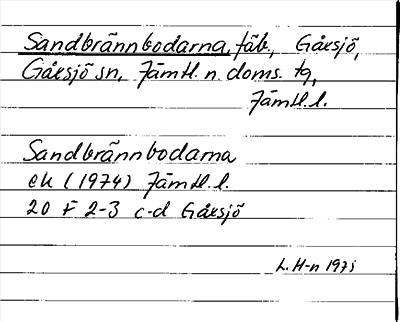 Sandbrännbodarna, fäb., Gåxsjö,
Gåxsjö sn, Jämtl. n. doms. tg,
Jämtl. l.
Sandbrännbodarna
ek (1974) Jämtl. l.
20 F 2-3 c-d Gåxsjö
L. H-n 1975